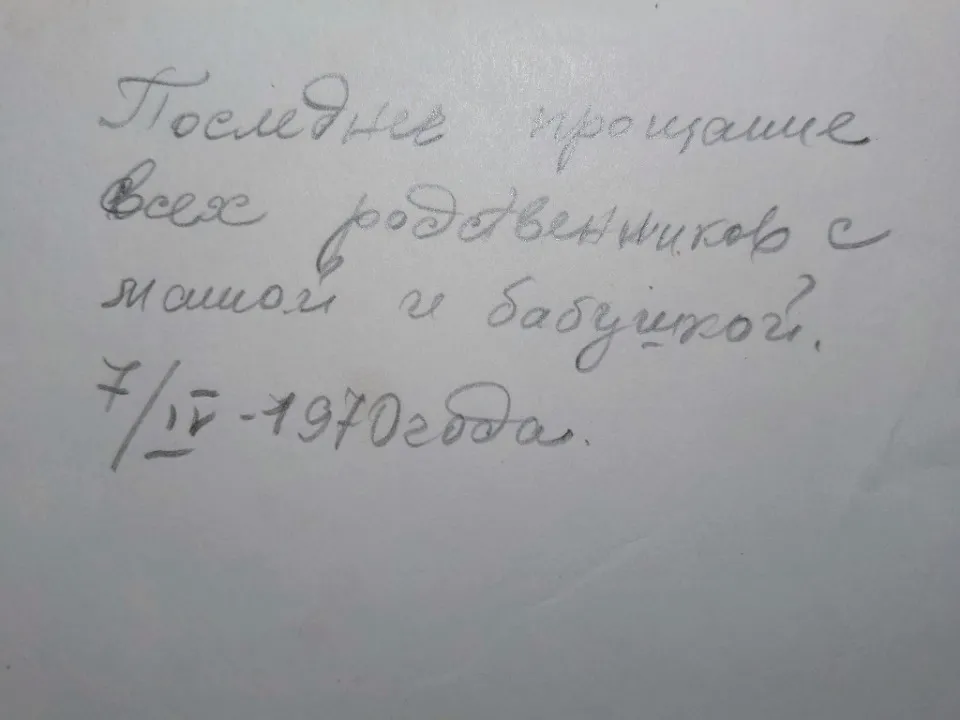 Последнее прощание
всех родственников с
мамой и бабушкой.
7/IV-1970 года.